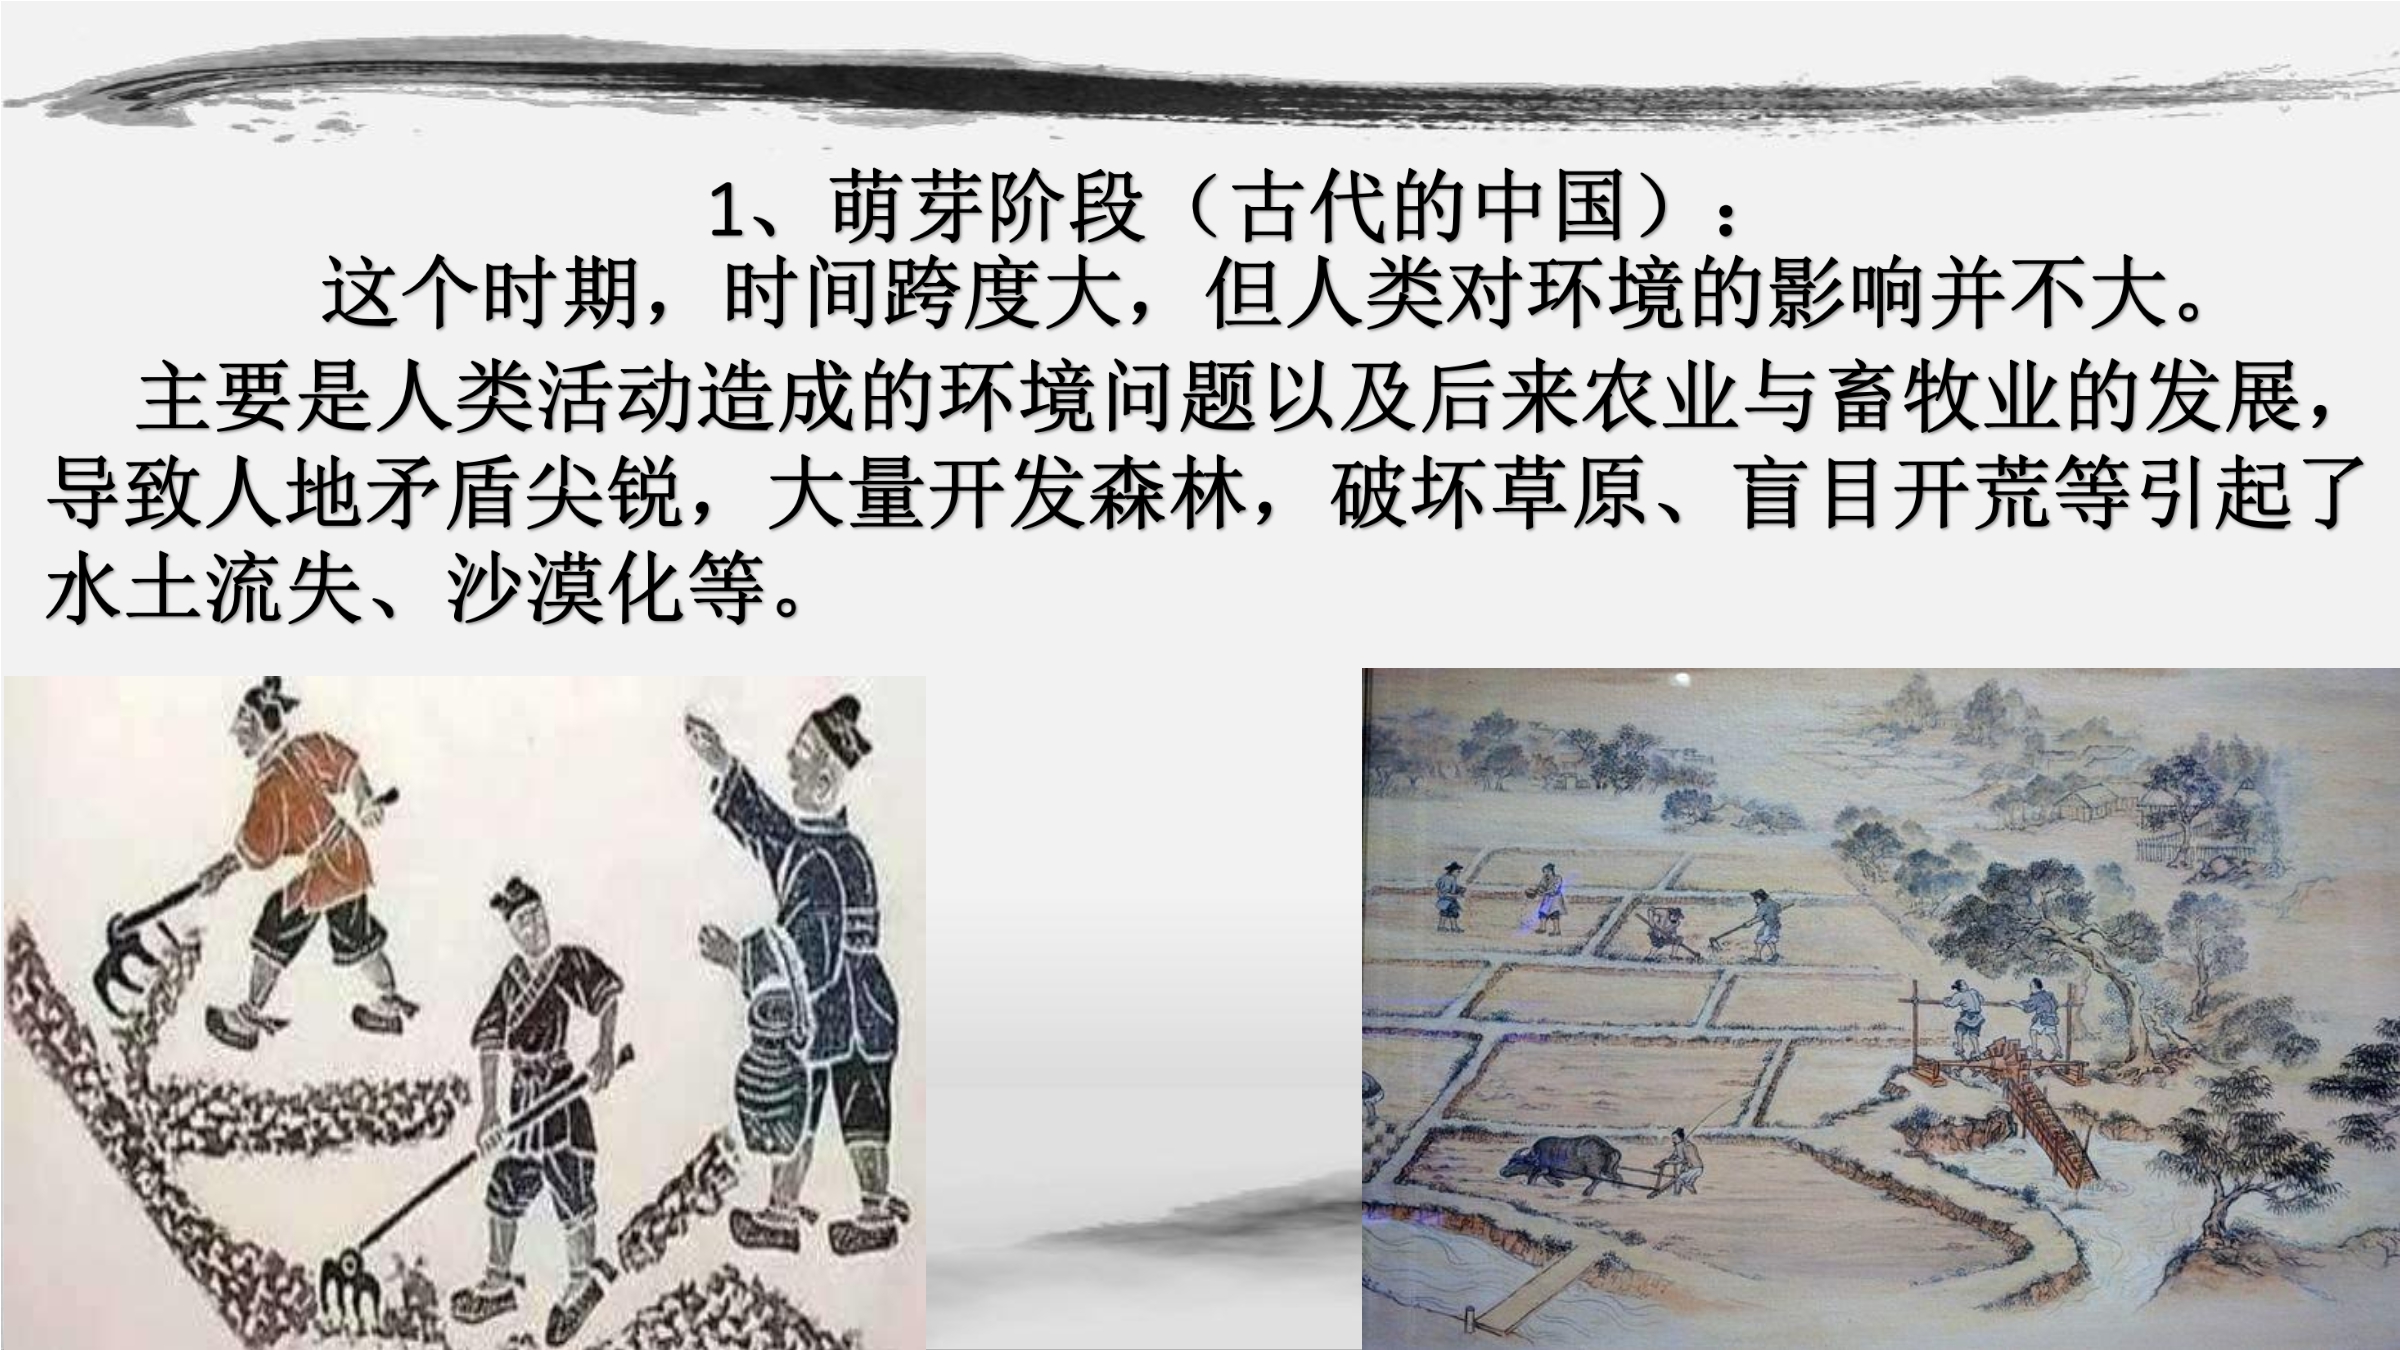 1、萌芽阶段（古代的中国）：
这个时期，时间跨度大，但人类对环境的影响并不大。
主要是人类活动造成的环境问题以及后来农业与畜牧业的发展，
导致人地矛盾尖锐，大量开发森林，破坏草原、盲目开荒等引起了
水土流失、沙漠化等。